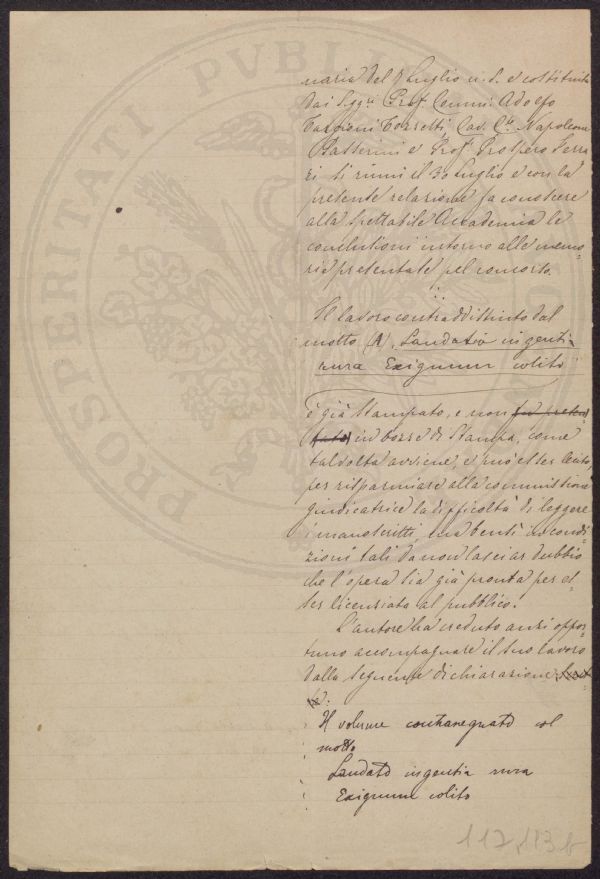 PROSPERITATI PVBLICAE
naria del 7 Luglio u. s. e costituita
dai Sggri Prof. Comm. Adolfo
Targioni Tozzetti, Cav. Napoleone
Passerini e Prof. Prospero Ferra
ri si riunì il 30 Luglio e con la
presente relazione fa conoscere
alla spettabile Accademia le
conclusioni intorno alle memo-
rie presentate pel concorso.
Il lavoro contraddistinto dal
motto (A) Laudatio ingenti-
rura Exiguum colito
è già stampato, e non fu presen
tato in bozze di stampa, come
talvolta avviene, e può esser lecito,
per risparmiare alla commissione
giudicatrice la difficoltà di leggere
i manoscritti, ma bensì in condi-
zioni tali da non lasciar dubbio
che l'opera sia già pronta per es-
ser licenziata al pubblico.
L'autore ha creduto anzi oppor
tuno accompagnare il suo lavoro
dalla seguente dichiarazione
Il volume contrasegnato col
motto
Laudato ingentia rura
Exiguum colito
117.113 b